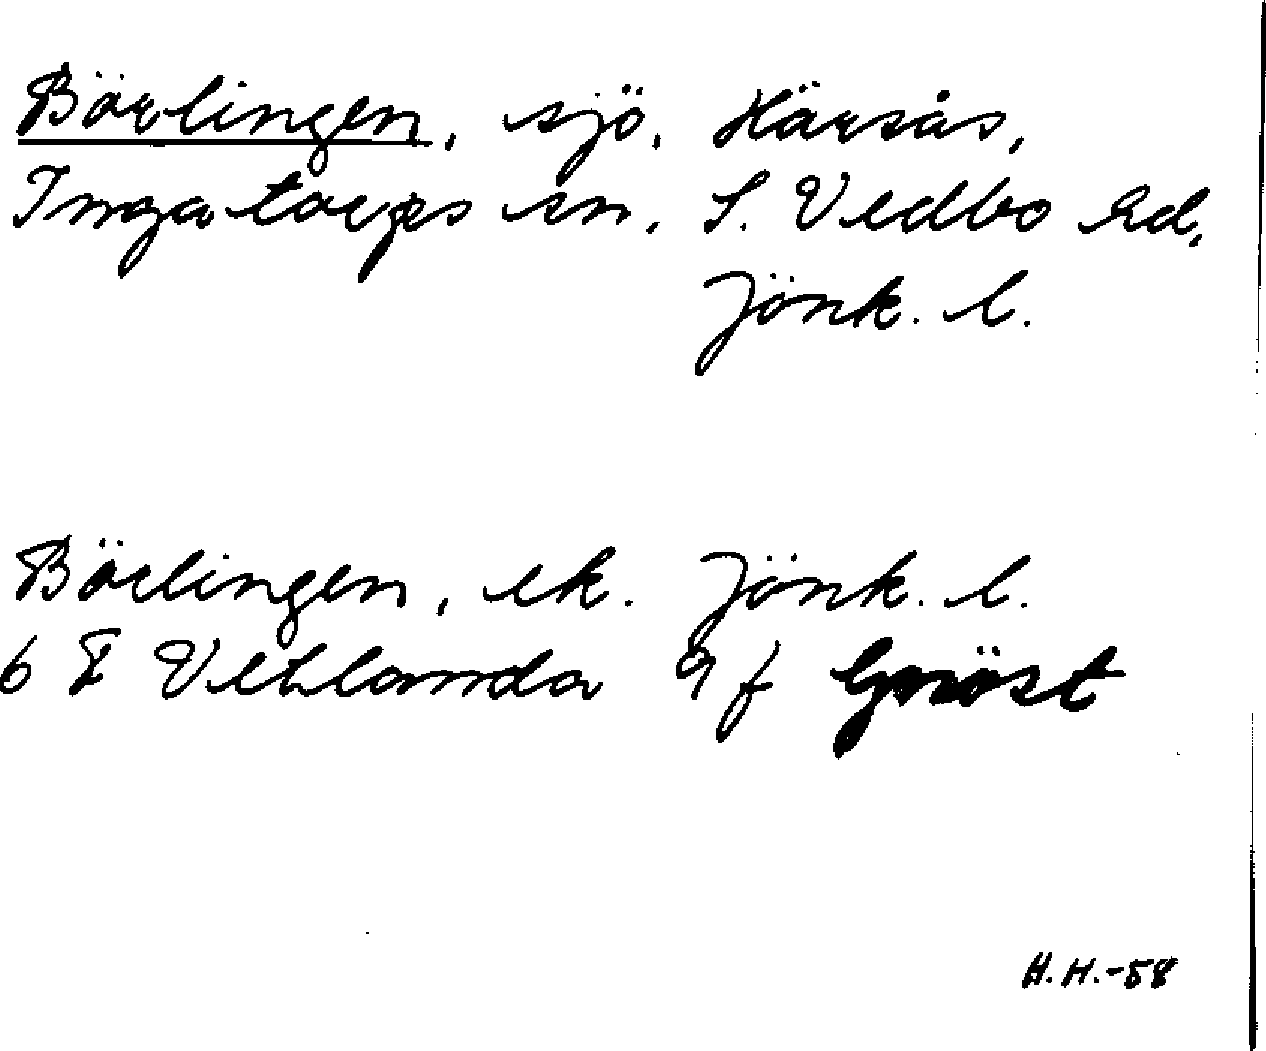 Börlingen, sjö, Härsås,
Ingatorps sn, S. Vedbo hd,
Jönk. l.
Börlingen, ek. Jönk. l.
6 F Vetlanda 9 f Gnöst
H.H.-58